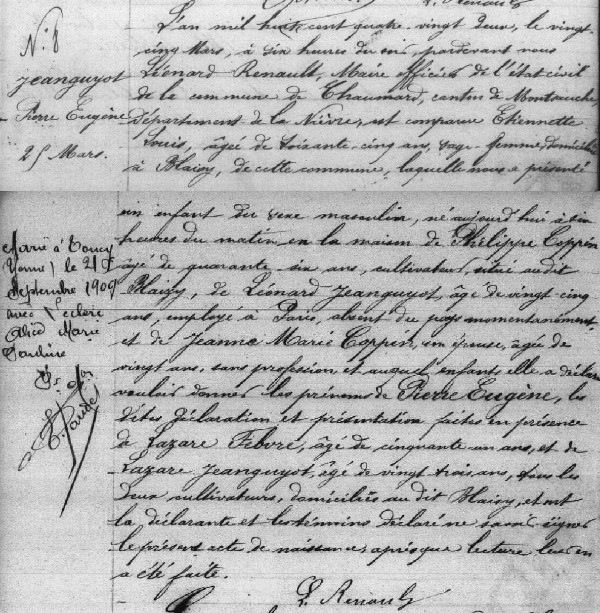 N° 8
Jeanguyot
Pierre Eugène
25 Mars.
L'an mil huit cent quatre vingt deux, le vingt-
cinq Mars, à six heures du soir pardevant nous
Léonard Renault, Maire officier de l'état civil
de la commune de Chaumard, canton de Montsauche,
Département de la Nièvre, est comparue Etiennette
Louis, âgée de soixante-cinq ans, sage-femme, domiciliée
à Blaisy, de cette commune, laquelle nous a présenté
un enfant du sexe masculin, né aujourd'hui à six
heures du matin en la maison de Philippe Coppin
âgé de quarante six ans, cultivateur, situé audit
Blaisy, de Léonard Jeanguyot, âgé de vingt-cinq
ans, employé à Paris, absent du pays momentanément,
et de Jeanne Marie Coppin, son épouse, âgée de
vingt ans, sans profession et auquel enfant elle a déclaré
vouloir donner les prénoms de Pierre Eugène, les
dites déclaration et présentation faites en présence
de Lazare Febvre, âgé de cinquante un ans, et de
Lazare Jeanguyot, âgé de vingt trois ans, tous les
deux cultivateurs, domiciliés au dit Blaisy, et ont
la déclarante et les témoins déclaré ne savoir signer
le présent acte de naissance, après que lecture leur en
a été faite.
L. Renault
Marié à Toucy
(Yonne) le 21
Septembre 1909
avec
Alice Marie